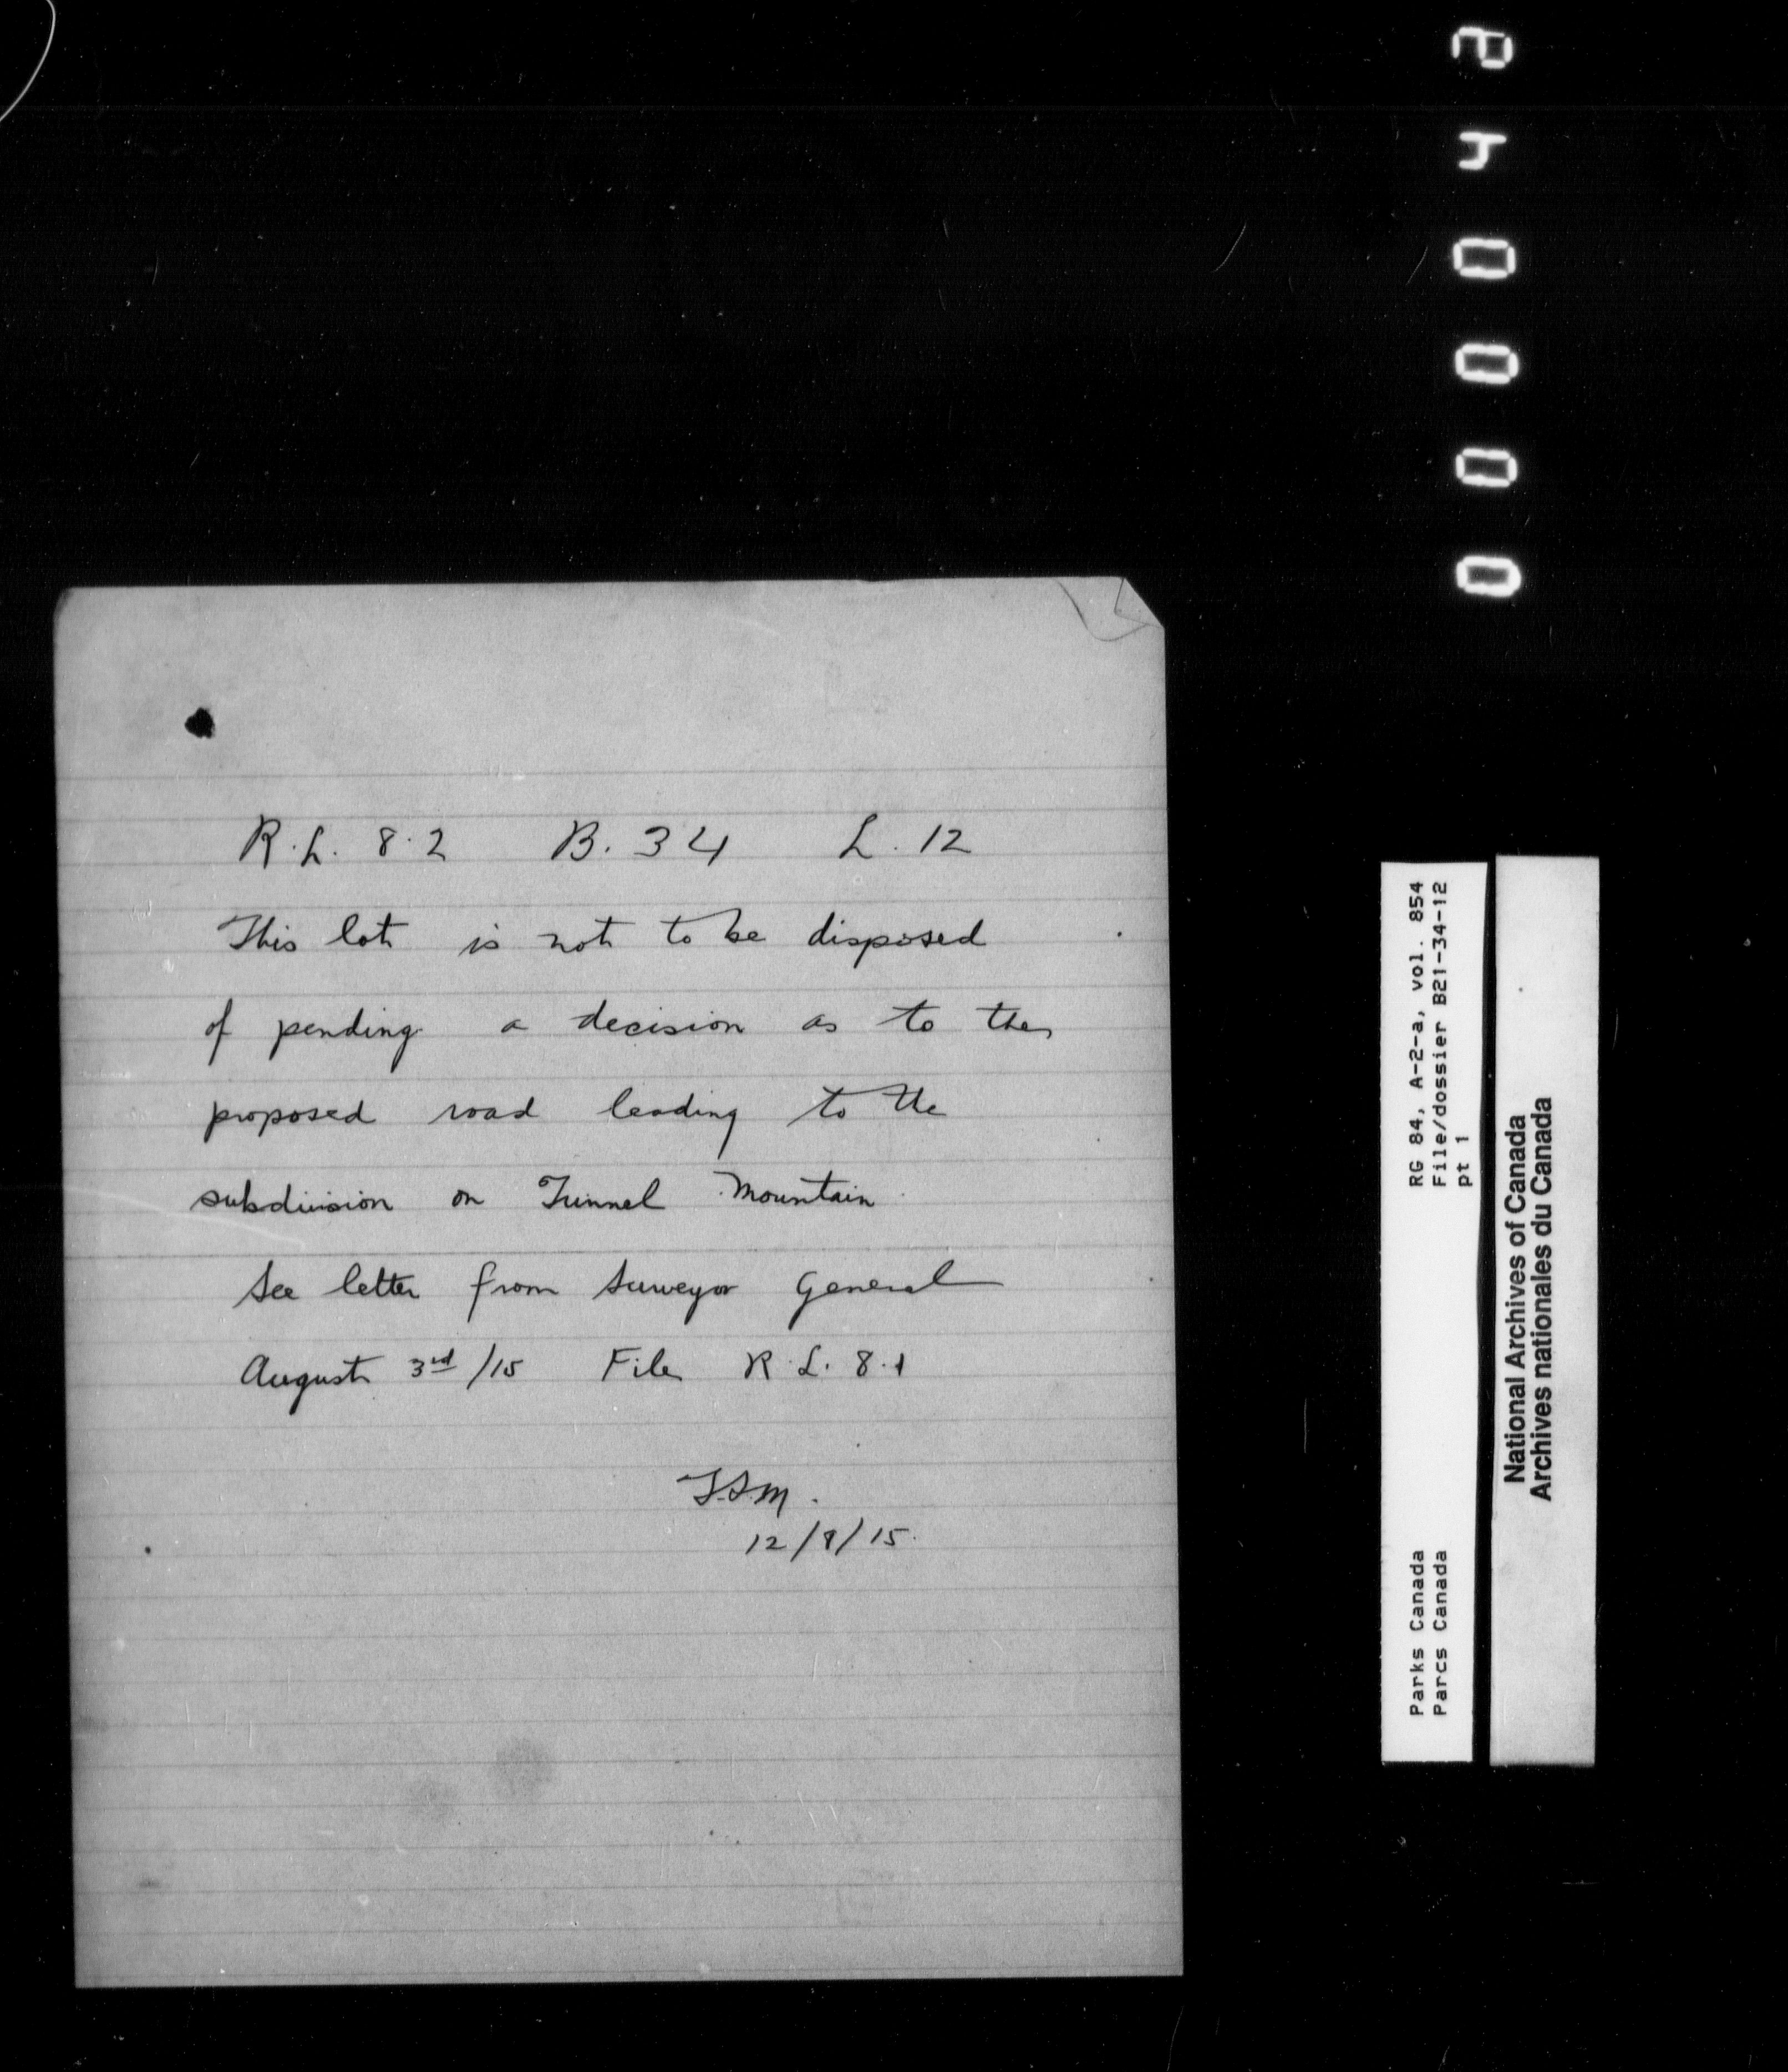 R.L. 8.2 B. 34 L. 12
This lot is not to be disposed
of pending a decision as to the
proposed road leading to the
subdivision on Tunnel Mountain
See letter from Surveyor General
August 3rd /15 File R.L. 8.1
12/8/15.
RG 84, A-2-a, vol. 854
File/dossier B21-34-12
pt 1
Parks Canada
Parcs Canada
National Archives of Canada
Archives nationales du Canada